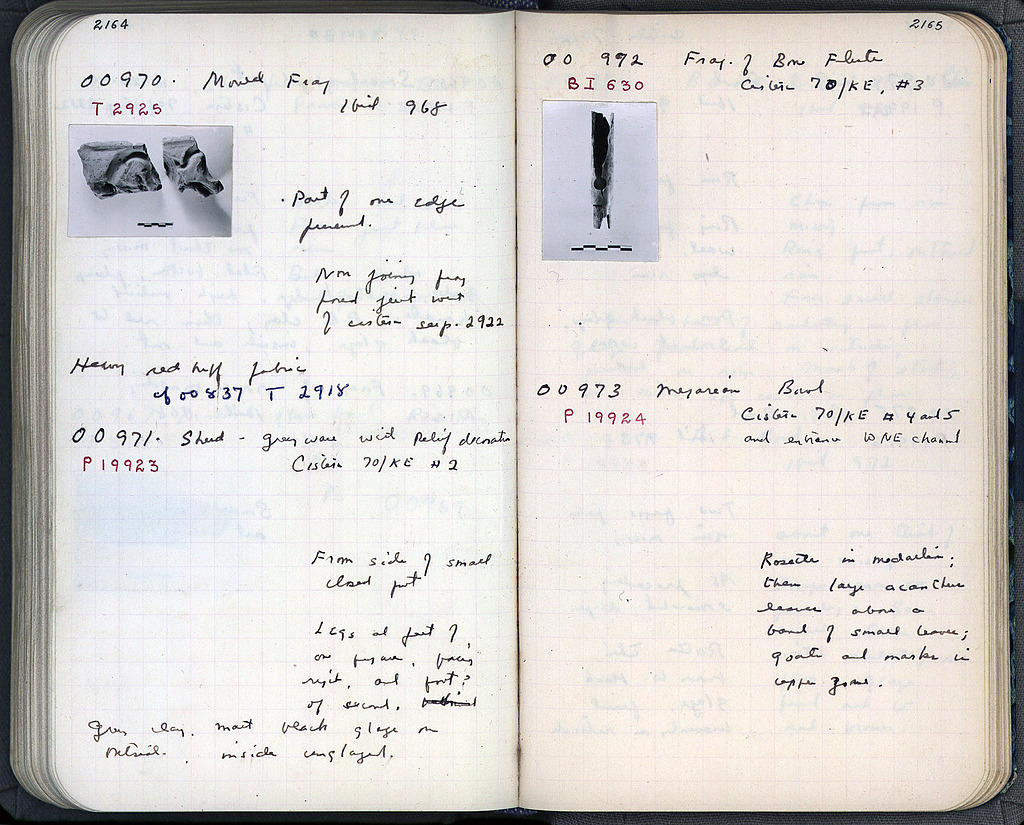 2164
OO 970. Mould Frag
T 2925 Ibid 968
. Part of one edge
present.
Non joining frag
found just west
of cistern sevp. 2922
Heavy red buff fabric
cf OO 837 T 2918
OO 971. Sherd - grey ware with Relief decoration
P 19923 Cistern 70/KE #2
From side of small
closed pot
Legs and feet of
one figure, facing
right, and foot?
of second.
Grey clay. matt black glaze on
outside. inside unglazed.
2165
OO 992 Frag. of Bone Flute
BI 630 Cistern 70/KE, #3
OO 973 Megarean Bowl
P 19924 Cistern 70/KE # 4 and 5
and entrance to NE channel
Rosette in medallion;
then large acanthus
leaves above a
band of small leaves;
goats and masks in
upper zone.